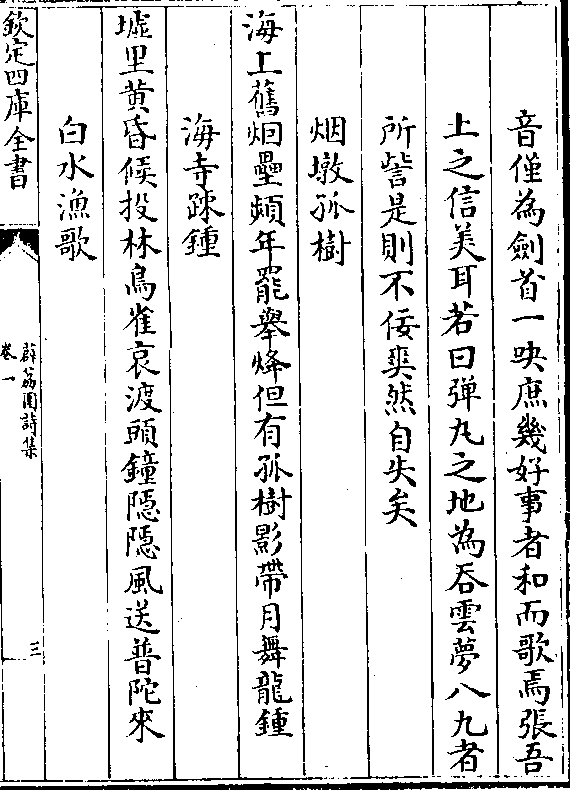 音僅為劍首一吷庶幾好事者和而歌焉張吾
上之信美耳若曰弹丸之地為吞雲夢八九者
所訾是則不佞爽然自失矣
烟墩孤樹
海上舊烟壘頻年罷舉烽但有孤樹影帶月舞龍鍾
海寺踈鍾
墟里黄昏候投林鳥雀哀渡頭鐘隱隱風送普陀來
白水漁歌
欽定四庫全書
薜荔園詩集
卷一
三